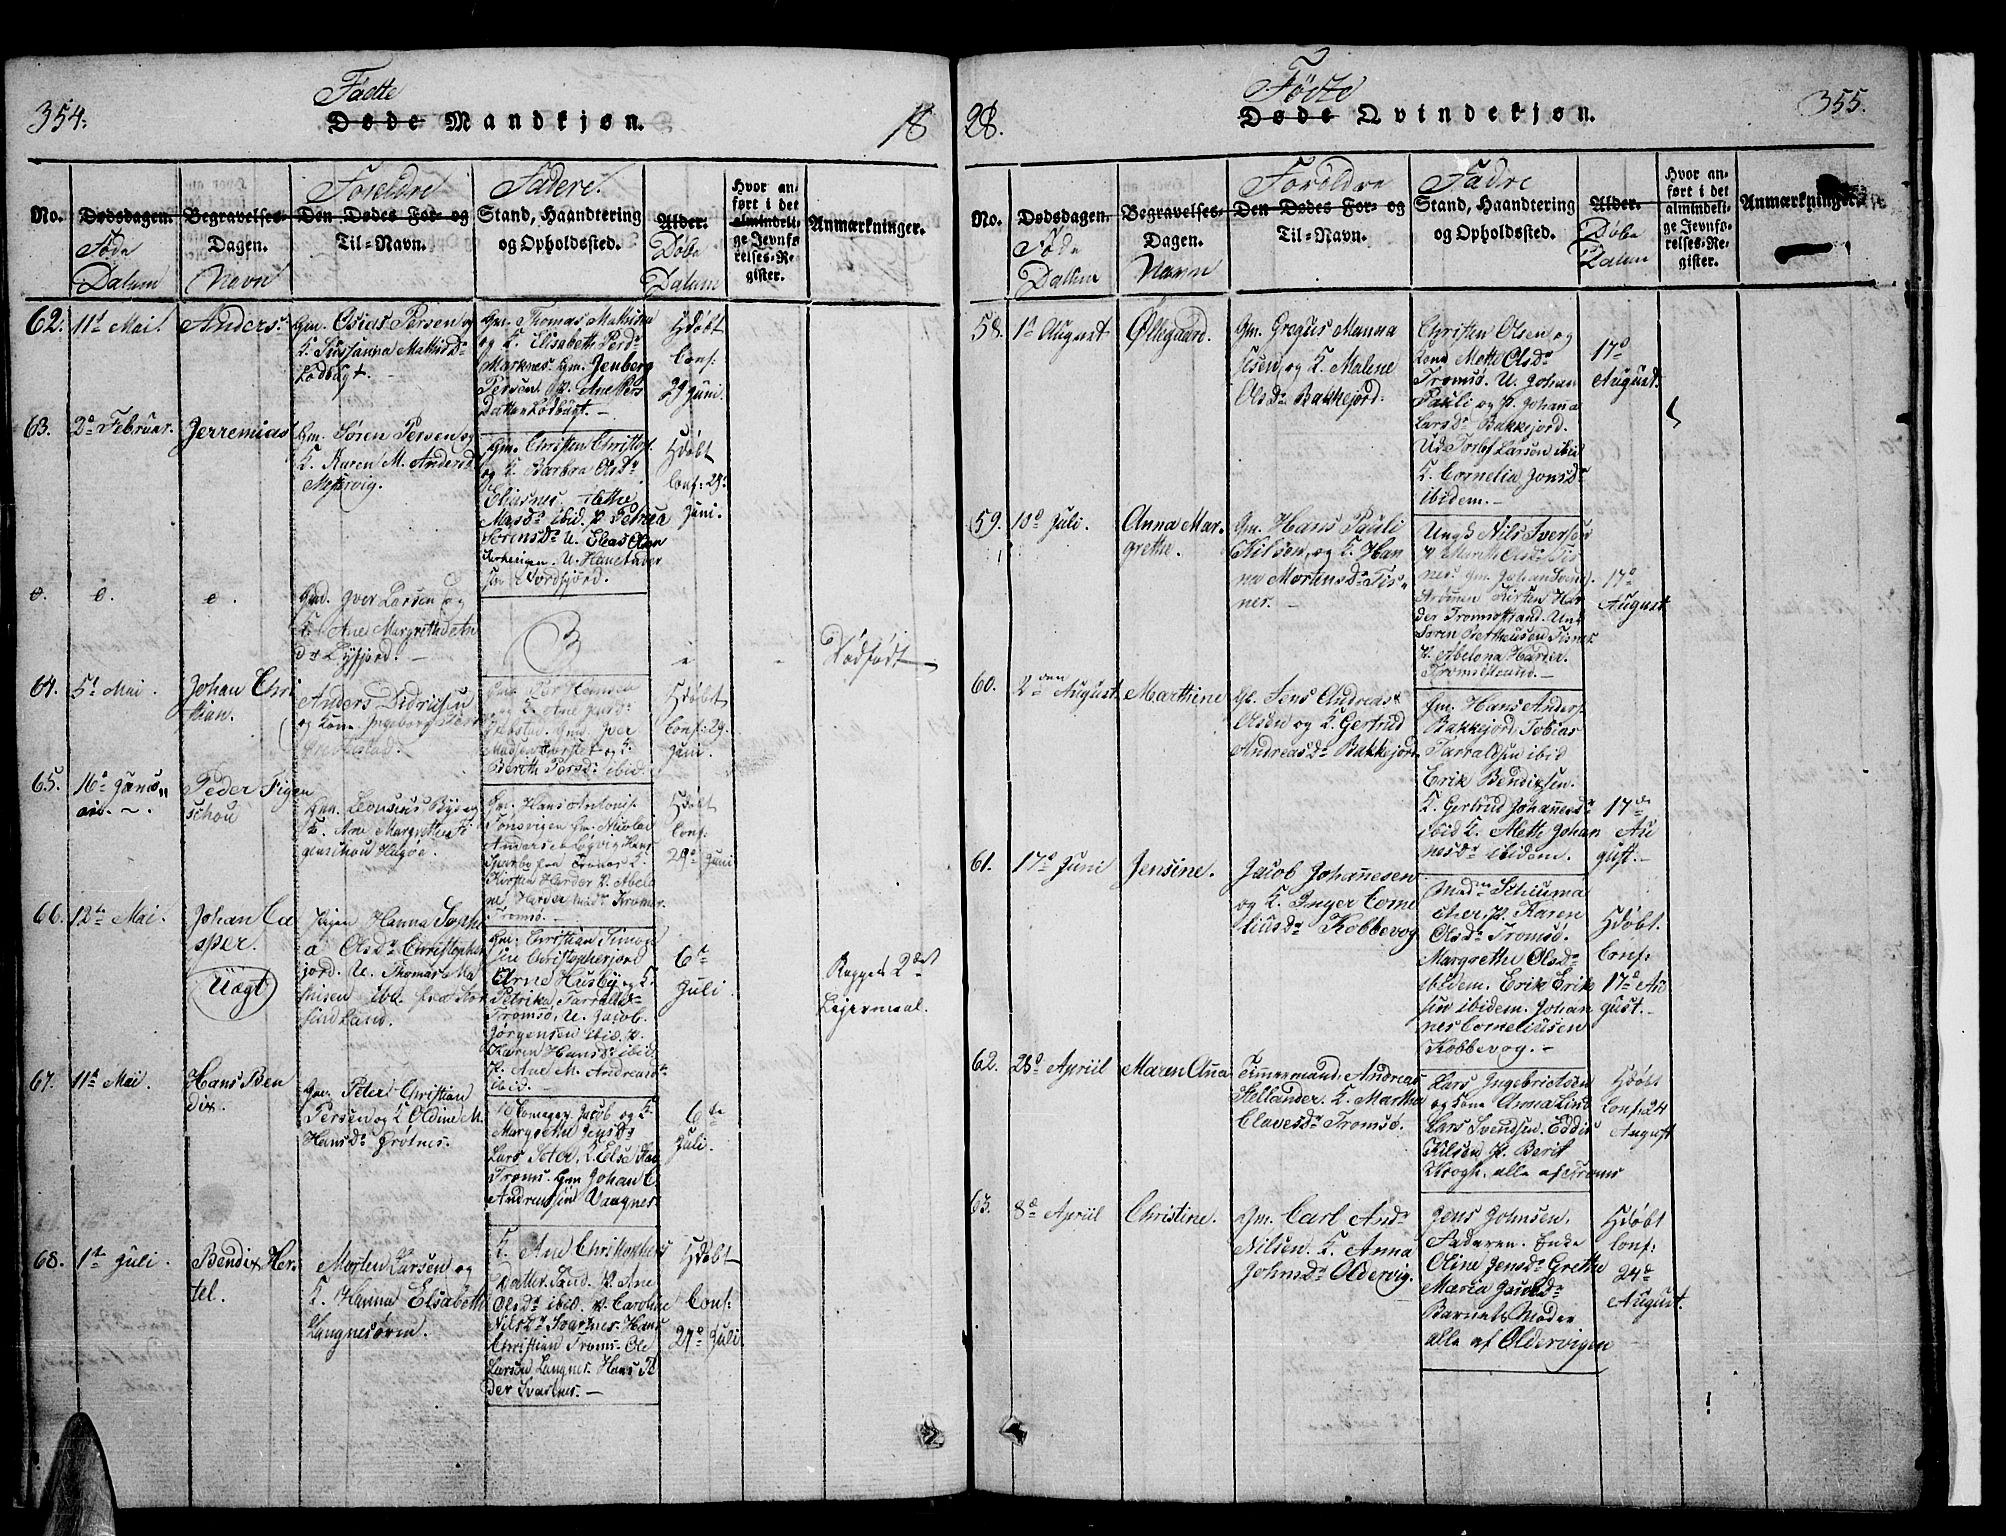 354.
Fødte
Døde Mandkjøn.
18
No.
Dødsdagen.
Føde
Datum
Begravelses-
Dagen.
Navn
Foreldre
Den Dødes For- og
Til-Navn.
Faderes
Stand, Haandtering
og Opholdssted.
Alder.
Døbe
Datum
Hvor an-
ført i det
almindeli-
ge Jevnfø-
relses-Re-
gister.
Anmærkninger.
62. 11te Mai. Anders.
Gm. Osias Persen og
K. Susanna Mathisd.
Lodbugt.
Gm. Thomas Mathisen
og K. Elisabeth Persd.
Marknes. Gm. Jenberg
Persen. P. Ane Pers
Datter Lodbugt. —
Hdøbt
Conf:
29 Juni.
63. 2den Februar. Jerremias
Gm. Søren Persen og
K. Karen M. Andersd.
Mestervig.
Gm. Christen Christop.
og K. Barbra Olsd.
Eliasnes.
Masd. ibid. P. Petrea
Sørensd. U. Elias Olsen
Hdøbt
Conf: 29.
Juni.
Gm. Iver Larsen og
K. Ane Margrethe An
d. Lysfjord. —
Dødfødt
64. 5te Mai. Johan Chri
stian.
Anders Didriksen
og Kone Ingeborg Persd.
Gm. Per Hansen
og K. Ane
Gm. Iver
Madsen
og K.
Berith Persd. ibid.
Hdøbt
Conf: 29.
Juni.
65. 16de Janu
ari. Peder Figen
schou
Gm. Leonsius Byd og
K. Ane Margrethe Fi
genschou Hagøe.
Gm. Hans Antonis.
Tønsvigen Gm. Nicolai
Anders.
Kirsten Harder P. Abelo
ne Harder
Tromsø.
Hdøbt
Conf:
29de Juni
66. 12te Mai. Johan Ca
sper.
Uægt
Pigen Hanna Sophi
a Olsd. Christopher
jord. U. Thomas Ma
thisen ibd.
Gm. Christian Simon
sen Christopherjord
Arne Husby og K.
Petrika Tarraldsd.
Tromsø, U. Jacob
Jørgensen ibid. P.
Karen Hansd. ibid
P. Ane M. Andreasd.
ibid. —
6te
Juli
2det
Leiermaal.
67. 11te Mai. Hans Ben
dix.
Gm. Peter Christian
Persen og K. Oldine M.
Hansd. Grøtnes.
Jacob og K.
Margrethe Jensd.
Lars K. Else
Troms. Gm Johan C
Andreassen Vaagnes.
6te
Juli.
68. 1te Juli. Bendix Her
tel.
Morten Larsen og
K. Hanna Elsabeth
Langnesøren.
K. Ane Christophers
Datter Sand. P. Ane
Olsd. ibid. P. Caroline
Nilsd. Svartnes. Hans
Christian Troms. Ole
Larsen Langnes. Hans Pe
der Svartnes. —
Hdøbt
Conf:
27de Juli.
28.
Fødte
Døde Qvindekjøn.
355.
No.
Dødsdagen.
Føde
Datum
Begravelses-
Dagen.
Navn
Foreldre
Den Dødes For- og
Til-Navn.
Fadre
Stand, Haandtering
og Opholdssted.
Alder.
Døbe
Datum
Hvor an-
ført i det
almindeli-
ge Jevnfø-
relses-Re-
gister.
Anmærkninger.
58. 1te August Øllegaard.
Gm. Gregus Manna
sesen og K. Malene
Olsd. Bakkejord.
Christen Olsen og
Kone Mette Olsd.
Tromsø. U. Johan
Pauli og P. Johanna
Larsd. Bakkejord.
Larsen ibid
K. Cornelia Jonsd.
ibidem. —
17de
August.
59. 10de Juli. Anna Mar-
grethe.
Gm. Hans Pauli
Kilsen, og K. Han
na Mortensd. Tis-
nes. —
Ungk Nils Iversen
P. Marith Olsd. Tis
nes. Gm. Johan Svend.
Kirsten Har
der Tromsøstrand. Un
Søren Bertheusen Tisnes
P. Abelona Harder
Tromsøstrand. —
17de
August
60. 2den August. Marthine
Gm. Jens Andreas
Olsen og K. Gertrud
Andreasd. Bakkejord.
Gm. Hans Anders.
Bakkejord. Tobias
Tarraldsen ibid
Erik Bendixsen.
K. Gertrud Johannesd.
ibid K. Meth Johan
nesd. ibidem.
17de
Au
gust. —
61. 17de Juni Jensine.
Jacob Johannesen
og K. Inger Corne
liusd. Kobbevog
Madm
P. Karen
Olsd. Tromsø.
Margrethe Olsd.
ibidem. Erik Erik
sen ibidem. Johan
nes Corneliusen
Kobbevog. —
Hdøbt.
Conf:
17de Au
gust. —
62. 28de Apriil Maren Ana
Timmermand Andreas
Hellander. K. Martha
Clavesd. Tromsø.
Lars Ingebrictsen
og Kone Anna Lind
Lars Svendsen. Eddis
Kilsen P. Berit
Krogh. alle af Troms
Hdøbt
Conf: 24
August
63. 8de Apriil Christine.
Gm. Carl And.
Nilsen. K. Anna
Johnsd. Oldervig.
Jens Johnsen.
Faderen. Enke
Oline Jensd. Grethe
Maria Jacobsd.
Barnets Moder
alle af Oldervigen
Hdøbt
Conf:
24de
August.